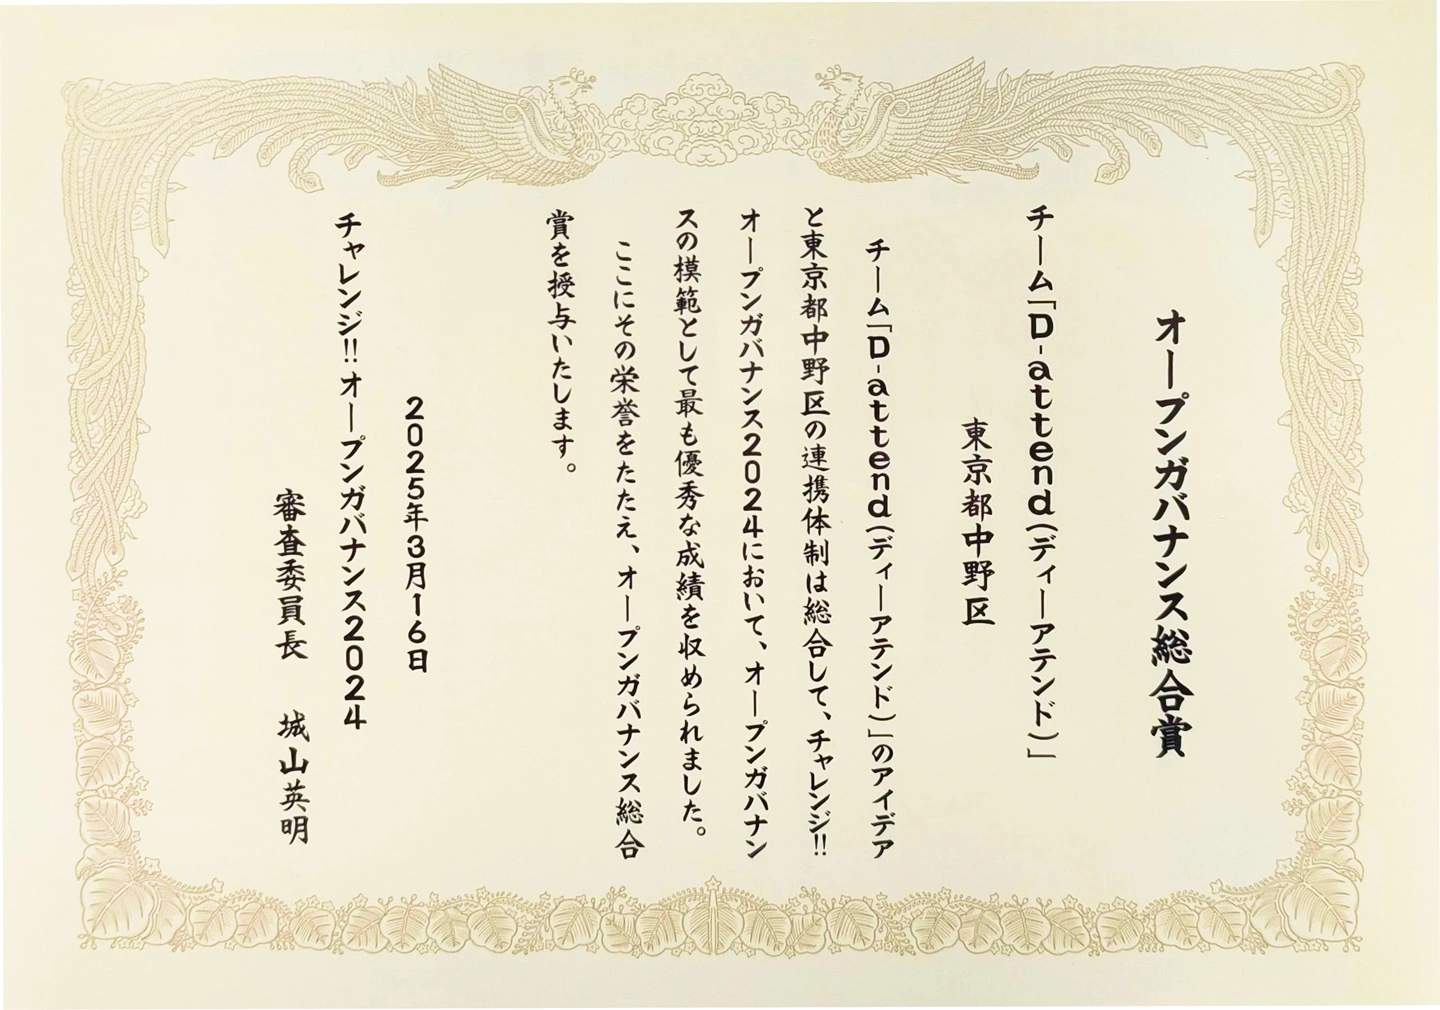 オープンガバナンス総合賞
チーム「D-attend(ディーアテンド)」
東京都中野区
チーム「D-attend(ディーアテンド)」のアイデア
と東京都中野区の連携体制は総合して、チャレンジ!!
オープンガバナンス2024において、オープンガバナン
スの模範として最も優秀な成績を収められました。
ここにその栄誉をたたえ、オープンガバナンス総合
賞を授与いたします。
2025年3月16日
チャレンジ!!オープンガバナンス2024
審査委員長 城山英明